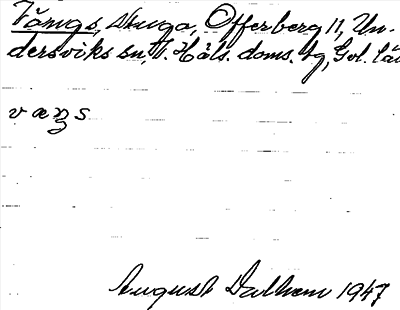 Vängs, stuga, Offerberg 11, Un-
dersviks sn, V. Häls. doms. bg, Gvl. län
v æŋ s
August Dalhem 1947